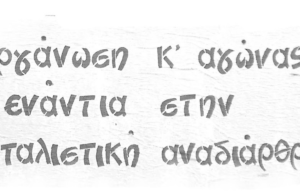 ργάνωση κ' αγώνας
ενάντια στην
ταλιστική αναδιάρθρ